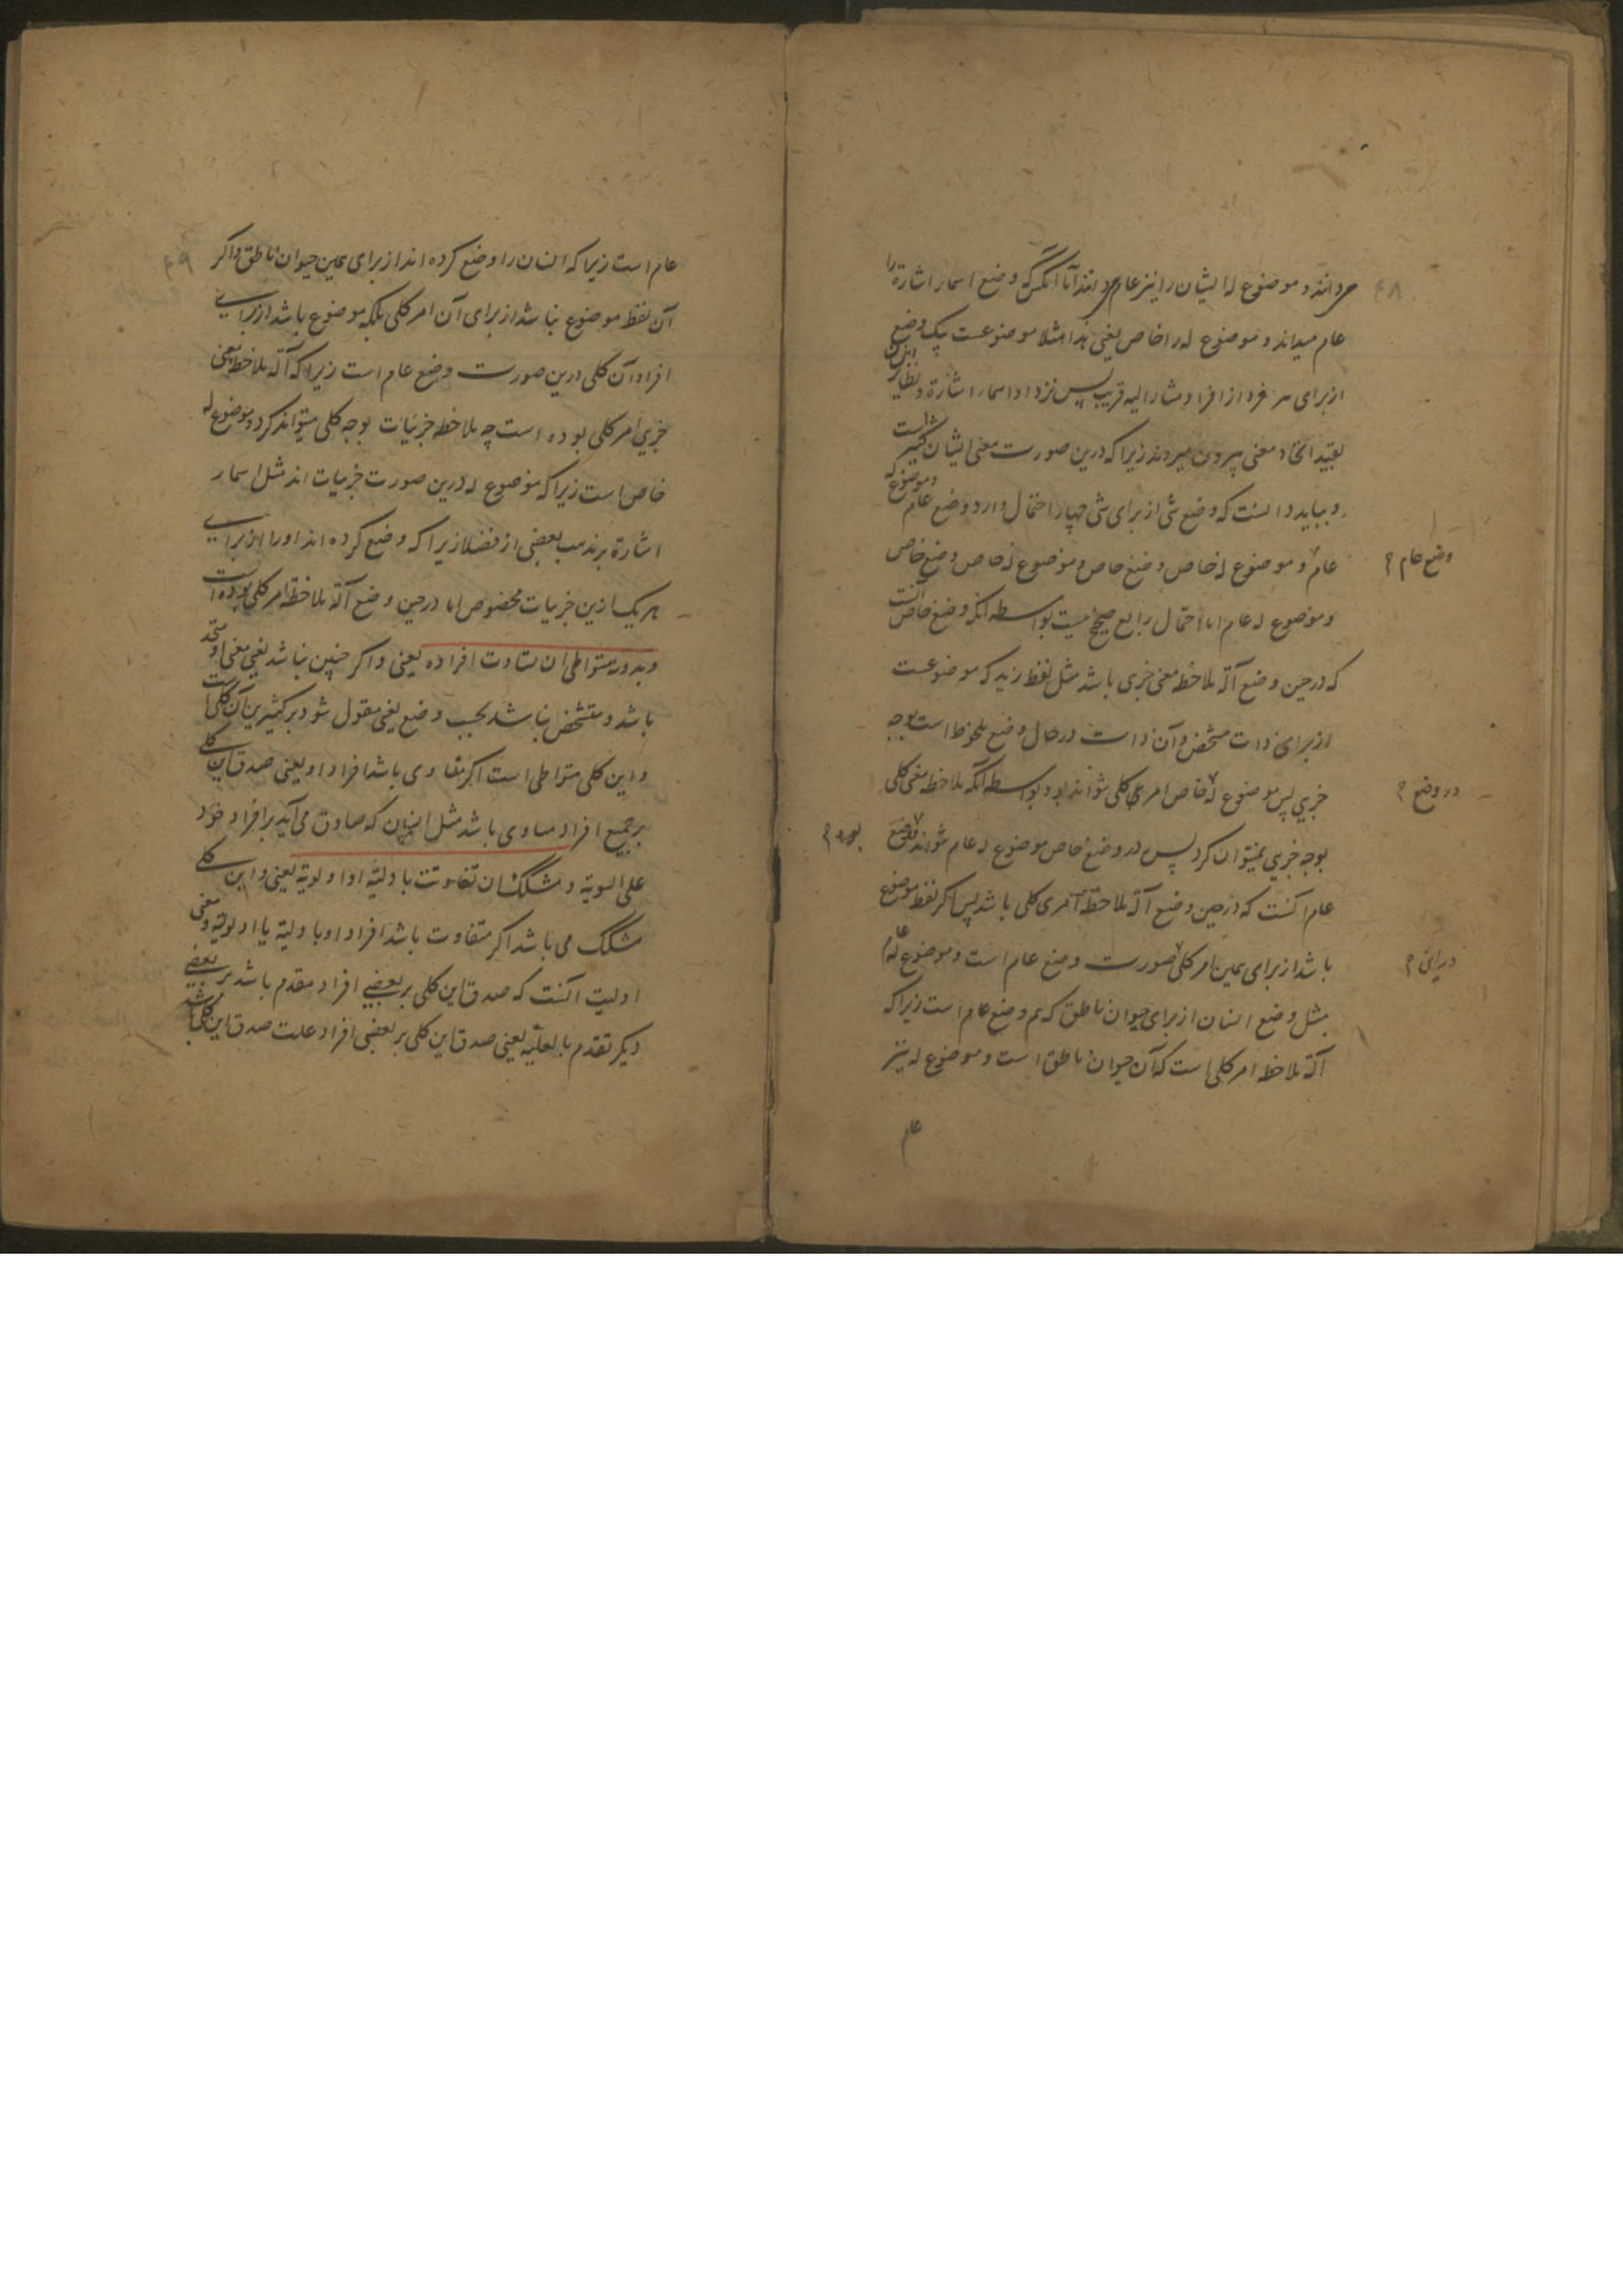 ۴۸
می‌دانند و موضوع له ایشان را نیز عام می‌دانند اما آنکس که وضع اسماء اشارة را
عام میداند و موضوع له را خاص یعنی هذا مثلا موضوعست بیک وضع
از برای هر فرد از افراد مشار الیه قریب پس نزد او اسماء اشارة و نظایر ایشان
بقید اتحاد معنی بیرون میروند زیرا که درین صورت معنی ایشان کثیر است
و بباید دانست که وضع شی از برای شی چهار احتمال دارد وضع عام و موضوع له
عام و موضوع له خاص وضع خاص و موضوع له خاص وضع خاص
وضع عام
و موضوع له عام اما احتمال رابع صحیح نیست بواسطه آنکه وضع خاص آنست
که در حین وضع آلة ملاحظه معنی جزی باشد مثل لفظ زید که موضوعست
از برای ذات مشخص و آن ذات در حال وضع ملحوظ است بوجه
جزیی پس موضوع له خاص امر کلی نتواند بود بواسطه آنکه ملاحظه معنی کلی
در وضع
بوجه جزیی نمیتوان کرد پس در وضع خاص موضوع له عام نتواند وضع
بود
عام آنست که در حین وضع آلة ملاحظة امری کلی باشد پس اگر لفظ موضوع
باشد از برای همین امر کلی صورت وضع عام است و موضوع له عام
درین
مثل وضع انسان از برای حیوان ناطق که هم وضع عام است زیرا که
آلة ملاحظه امر کلی است که آن حیوان ناطق است و موضوع له نیز
عام
۴۹
عام است زیرا که انسان را وضع کرده اند از برای همین حیوان ناطق و اگر
آن لفظ موضوع نباشد از برای آن امر کلی بلکه موضوع باشد از برای
افراد آن کلی درین صورت وضع عام است زیرا که آلة ملاحظه معنی
جزیی امر کلی بوده است چه ملاحظه جزئیات بوجه کلی میتواند کرد و موضوع له
خاص است زیرا که موضوع له درین صورت جزییات اند مثل اسماء
اشارة بر مذهب بعضی از فضلا زیرا که وضع کرده اند او را از برای
هر یک ازین جزییات مخصوص اما در حین وضع آلة ملاحظة امر کلی بوده است
و بدونه متواطی ان تساوت افراده یعنی و اگر چنین نباشد یعنی معنی او متحد
باشد و متشخص نباشد بحسب وضع یعنی مقول شود بر کثیرین آن کلی است
و این کلی متواطی است اگر متساوی باشد افراد او یعنی صدق این کلی
بر جمیع افراد مساوی باشد مثل انسان که صادق می‌آید بر افراد خود
علی السویة و مشکک ان تفاوتت باولیة او اولویة یعنی و این کلی
مشکک می باشد اگر متفاوت باشد افراد او باولیة یا اولویة و معنی
اولیت آنست که صدق این کلی بر بعضی افراد مقدم باشد بر بعضی
دیگر تقدم بالعلیة یعنی صدق این کلی بر بعضی افراد علت صدق این کلی باشد